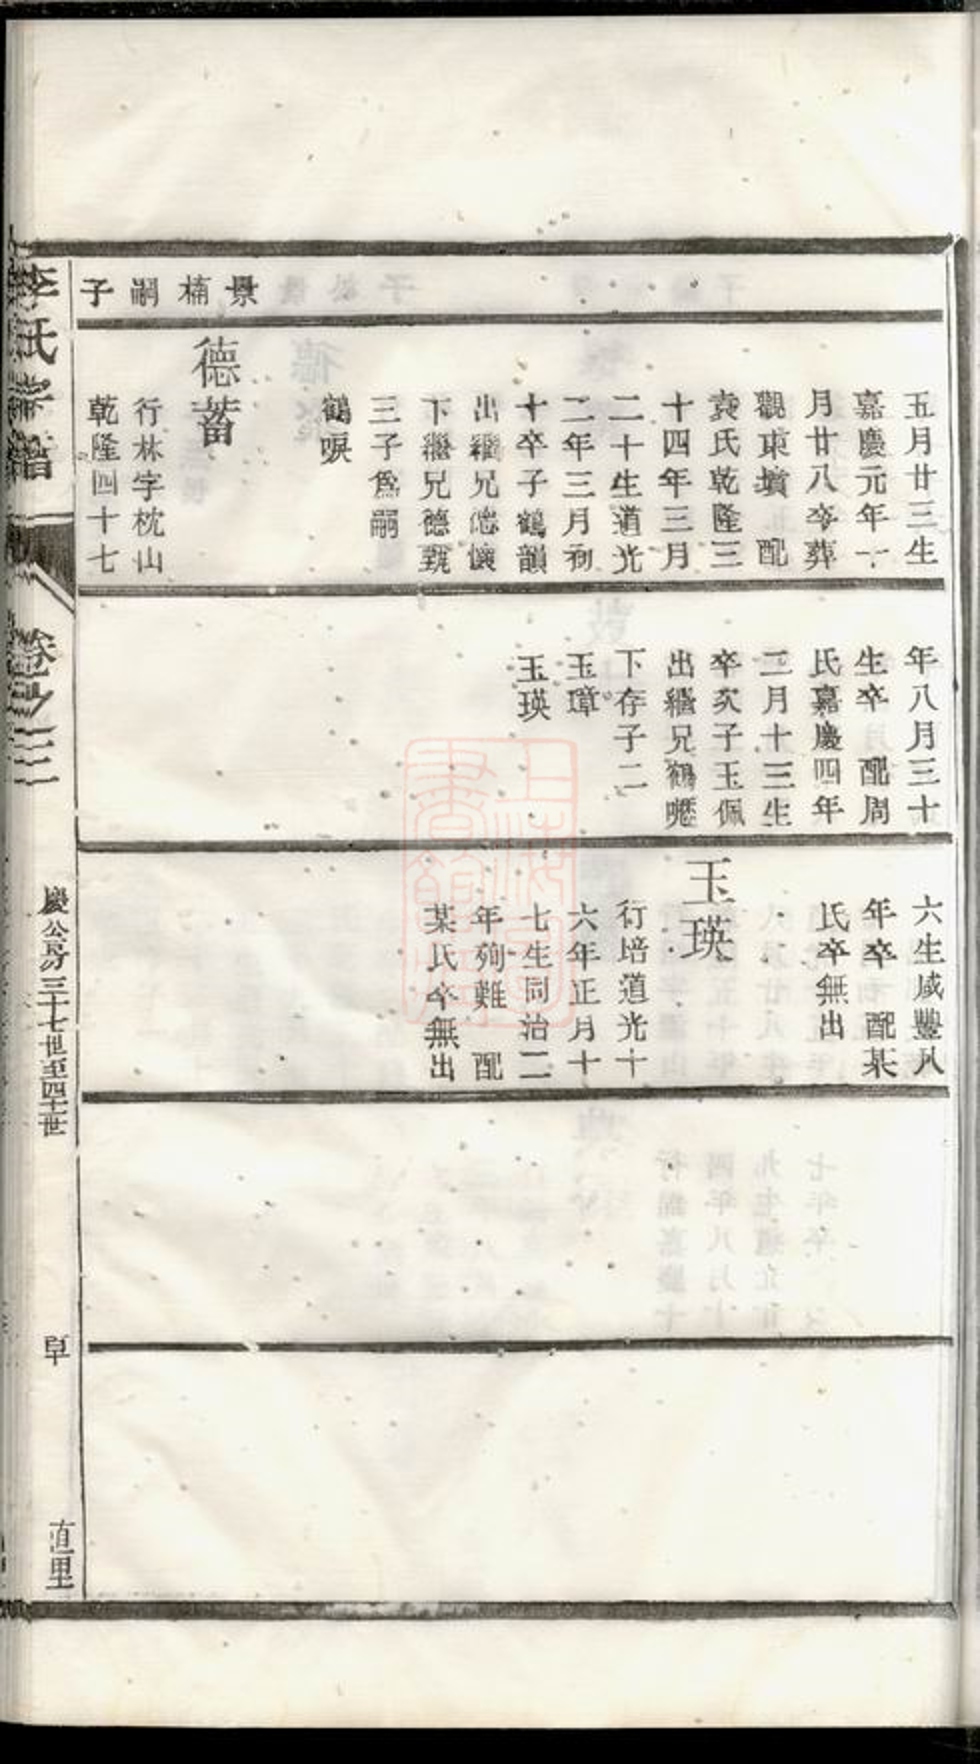 景楠嗣子
五月廿三生
嘉慶元年一
月廿八卒葬
觀東墳 配
袁氏乾隆三
十四年三月
二十生道光
二年三月初
十卒子鶴韻
出繼兄德懷
下繼兄德甄
三子爲嗣
鶴唳
德蓄
行林字枕山
乾隆四十七
年八月三十
生卒 配周
氏嘉慶四年
二月十三生
卒亥子玉佩
出繼兄鶴嚦
下存子二
玉璋
玉瑛
六生咸豐八
年卒 配某
氏卒無出
玉瑛
行培道光十
六年正月十
七生同治二
年殉難 配
某氏卒無出
李氏譜
慶公房三十七世至四十一世
直里